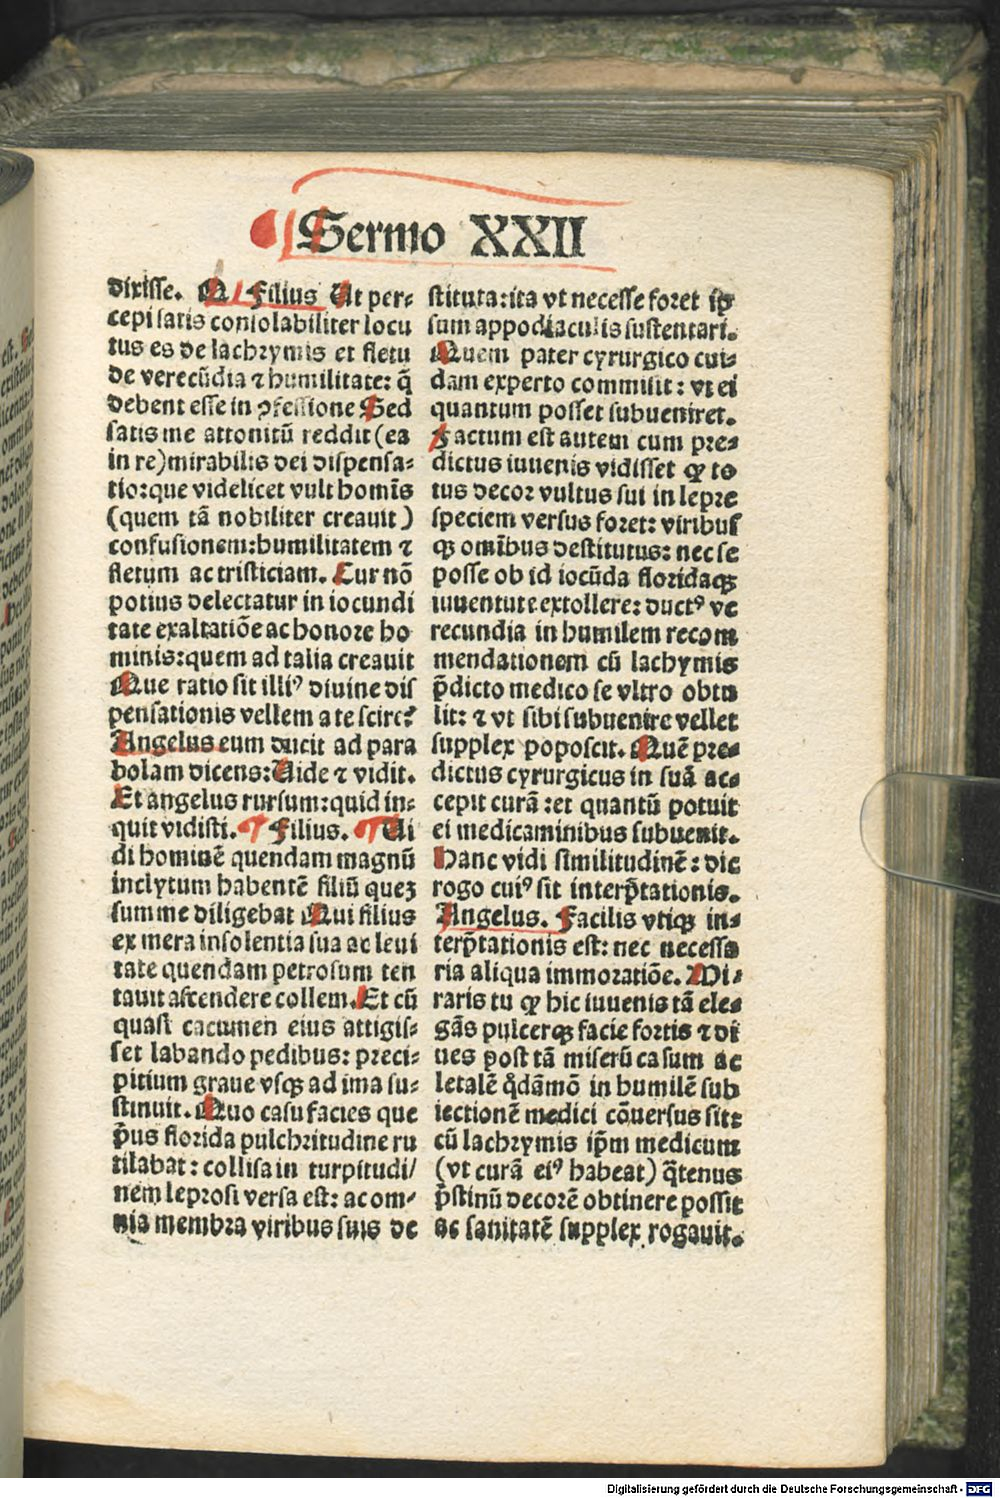 Sermo XXII
dixisse. M Filius Ut per⸗
cepi satis consolabiliter locu
tus es de lachrymis et fletu
de verecūdia ⁊ humilitate: q̄
debent esse in ꝓfessione Sed
satis me attonitū reddit (ea
in re) mirabilis dei dispensa⸗
tio: que videlicet vult homīs
(quem tā nobiliter creauit)
confusionem: humilitatem ⁊
fletum ac tristiciam. Cur nō
potius delectatur in iocundi
tate exaltatiōe ac honore ho
minis: quem ad talia creauit
Que ratio sit illiꝰ diuine dis
pensationis vellem a te scire?
Angelus eum ducit ad para
bolam dicens: Uide ⁊ vidit.
Et angelus rursum: quid in⸗
quit vidisti. Filius. Ui
di hominē quendam magnū
inclytum habentē filiū queꝫ
summe diligebat Qui filius
ex mera insolentia sua ac leui
tate quendam petrosum ten
tauit ascendere collem. Et cū
quasi cacumen eius attigis⸗
set labando pedibus: preci⸗
pitium graue vsqꝫ ad ima su⸗
stinuit. Quo casu facies que
p̄us florida pulchritudine ru
tilabat: collisa in turpitudi/
nem leprosi versa est: ac om⸗
nia membra viribus suis de
stituta: ita vt necesse foret ip
sum appodiaculis sustentari.
Quem pater cyrurgico cui⸗
dam experto commisit: vt ei
quantum posset subueniret.
Factum est autem cum pre⸗
dictus iuuenis vidisset ꝙ to
tus decor vultus sui in lepre
speciem versus foret: viribus
qꝫ omībus destitutus: nec se
posse ob id iocūda floridaqꝫ
iuuentute extollere: ductꝰ ve
recundia in humilem recom
mendationem cū lachymis
p̄dicto medico se vltro obtu
lit: ⁊ vt sibi subuenire vellet
supplex poposcit. Quē pre⸗
dictus cyrurgicus in suā ac⸗
cepit curā: et quantū potuit
ei medicaminibus subuenit.
Hanc vidi similitudinē: dic
rogo cuiꝰ sit interp̄tationis.
Angelus. Facilis vtiqꝫ in⸗
terp̄tationis est: nec necessa
ria aliqua immoratiōe. Mi⸗
raris tu ꝙ hic iuuenis tā ele⸗
gās pulcerqꝫ facie fortis ⁊ di
ues post tā miserū casum ac
letalē q̊dāmō in humilē sub
iectionē medici cōuersus sit:
cū lachrymis ip̄m medicum
(vt curā eiꝰ habeat) q̄tenus
p̄stinū decorē obtinere possit
ac sanitatē supplex rogauit.
Digitalisierung gefördert durch die Deutsche Forschungsgemeinschaft - DFG